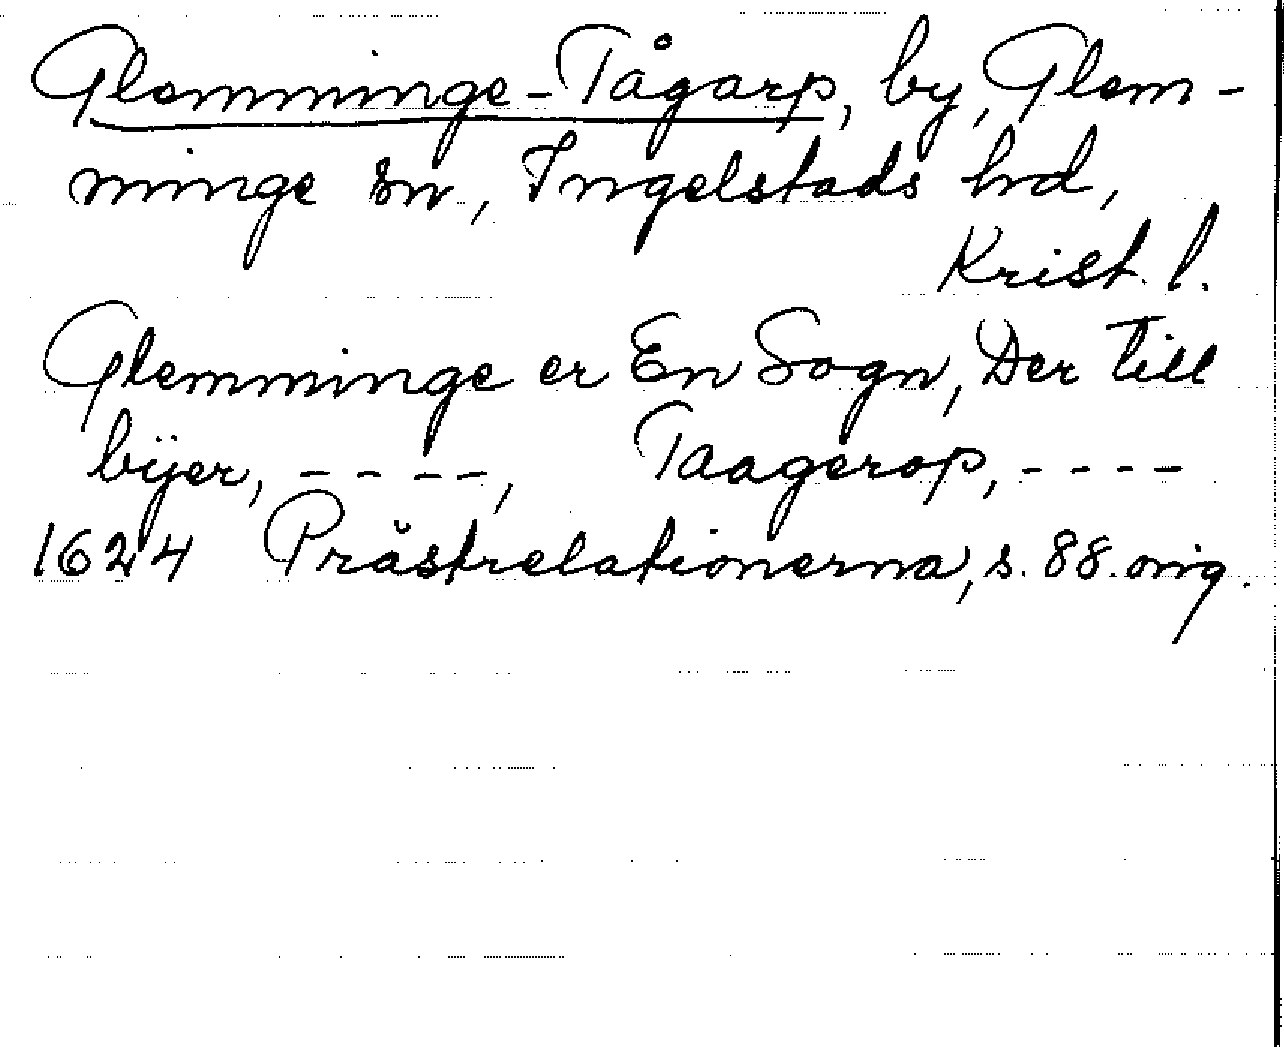 Glemminge-Tågarp, by, Glem-
minge sn, Ingelstads hd,
Krist. l.
Glemminge er En Sogn, Der till
bÿer, - - - -, Taagerop, - - - -
1624 Prästrelationerna, s. 88. orig.